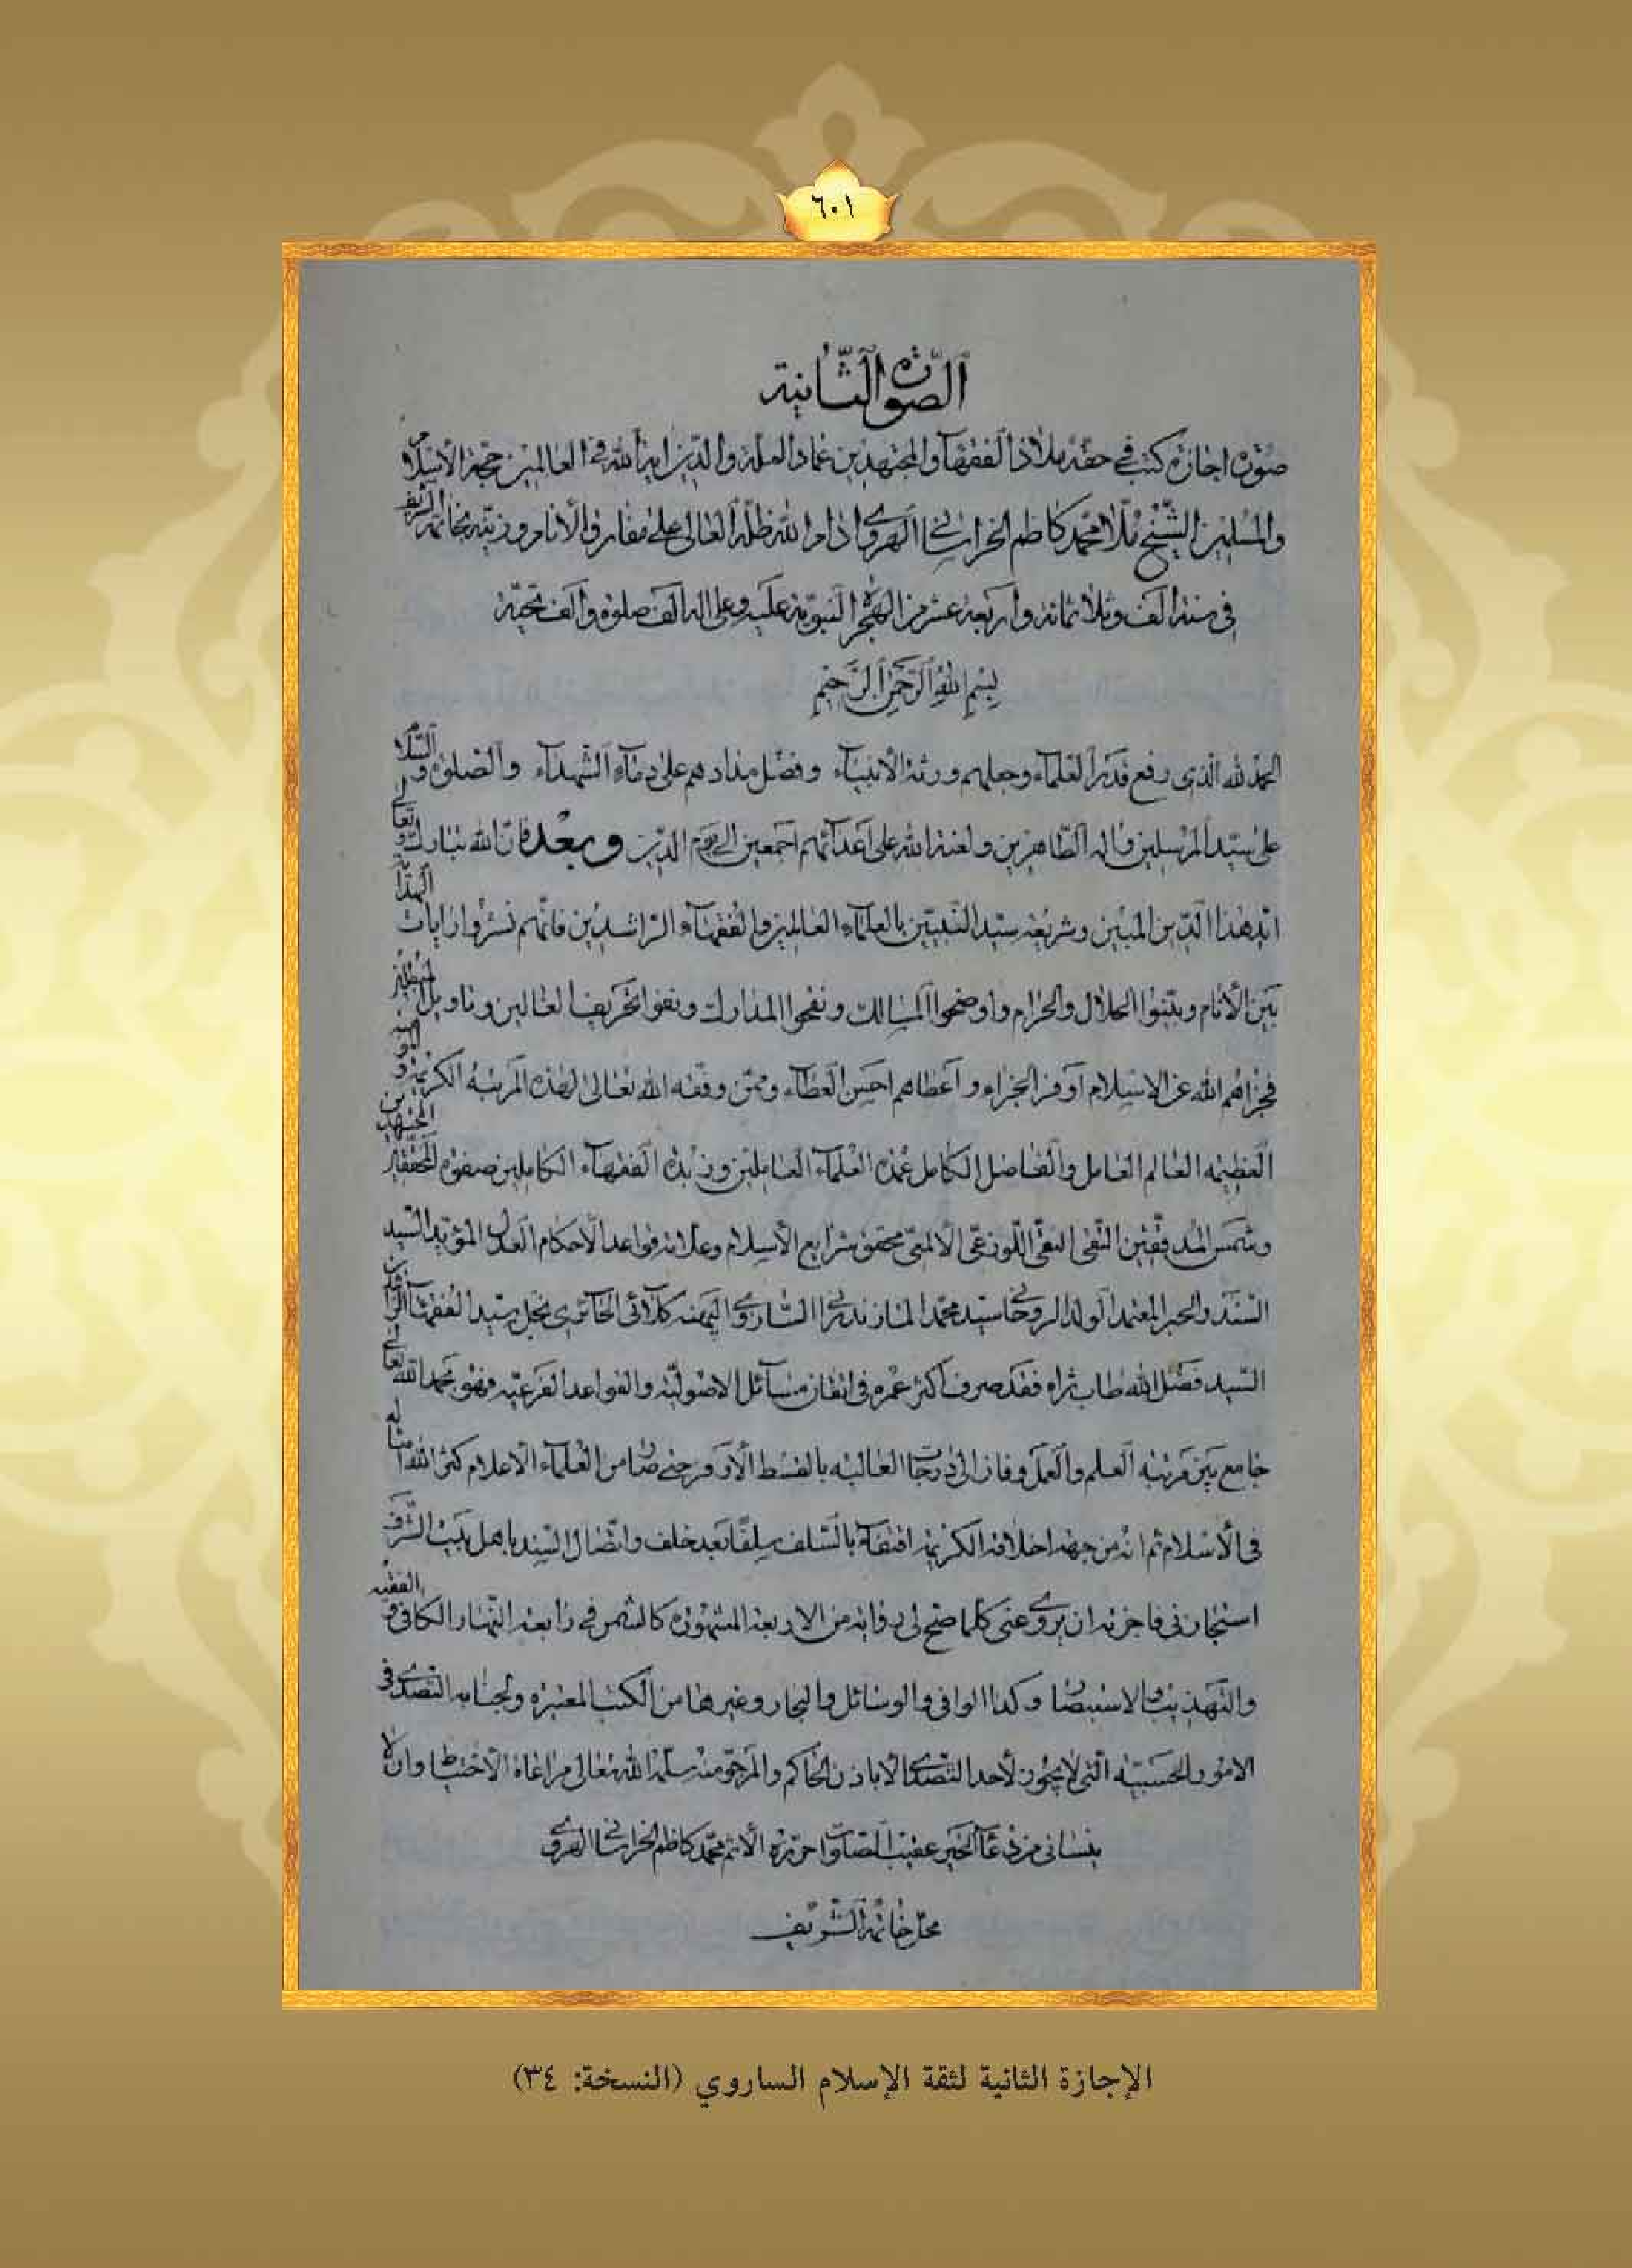 ٦٠١
الصورة الثانية
صورة اجازة كتب في حقه ملاذ الفقهاء والمجتهدين عماد الملة والدين اية الله في العالمين حجة الأسلام
والمسلمين الشيخ ملا محمد كاظم الخراساني الهروي ادام الله ظله العالى على مفارق الأنام وزينه بخاتمه الشريف
في سنة الف وثلاثمائة واربعة عشر من الهجرة النبوية عليه وعلى اله الف صلوة والف تحية
بسم الله الرحمن الرحيم
الحمد لله الذي رفع قدر العلماء وجعلهم ورثة الأنبياء وفضل مدادهم على دماء الشهداء والصلوة و السلام
على سيد المرسلين واله الطاهرين ولعنة الله على اعدائهم اجمعين الى يوم الدين وبعد فان الله تبارك و تعالى
ايد هذا الدين المبين وشريعة سيد النبيين بالعلماء العالمين والفقهاء الراشدين فانهم نشروا رايات الهداية
بين الأنام وبينوا الحلال والحرام واوضحوا المسالك ونقحوا المدارك ونفوا تحريف الغالين وتاويل المبطلين
فجزاهم الله عن الاسلام اوفر الجزاء واعطاهم احسن العطاء وممن وفقه الله تعالى لهذه المرتبة الكريمة و
العظيمة العالم العامل والفاضل الكامل عمدة العلماء العاملين وزبدة الفقهاء الكاملين صفوة المحققين
وشمس المدققين التقى النقى اللوذعى الألمعى محقق شرايع الأسلام وعلامة قواعد الأحكام العدل المؤيد السيد
السند والحبر المعتمد الولد الروحاني سيد محمد المازندراني الساروي نجل سيد الفقهاء الراشدين
السيد فضل الله طاب ثراه فقد صرف اكثر عمره في اتقان مسائل الاصولية والقواعد الفرعية فهو بحمد الله تعالى
جامع بين مرتبة العلم والعمل وفاز الى درجات العالية بالقسط الأوفر حتى صار من العلماء الاعلام كثر الله امثاله
في الأسلام ثم انه من جهة اخلاقه الكريمة اقتفاء بالسلف سلفا بعد خلف واتصال السند باهل بيت الشرف
استجازنى فاجزته ان يروي عنى كلما صح لى روايته من الاربعة المشهورة كالشمس في رابعة النهار الكافي و الفقيه
والتهذيب والاستبصار وكذا الوافي والوسائل والبحار وغيرها من الكتب المعتبرة ولجنابه التصدي في
الامور الحسبية التي لا يجوز لأحد التصدي الا باذن الحاكم والمرجو منه سلمه الله تعالى مراعاة الأحتياط وان لا
ينسانى من دعاء الخير عقيب الصلوات حرره الأثم محمد كاظم الخراساني الهروي
محل خاتمه الشريف
الإجازة الثانية لثقة الإسلام الساروي (النسخة: ٣٤)